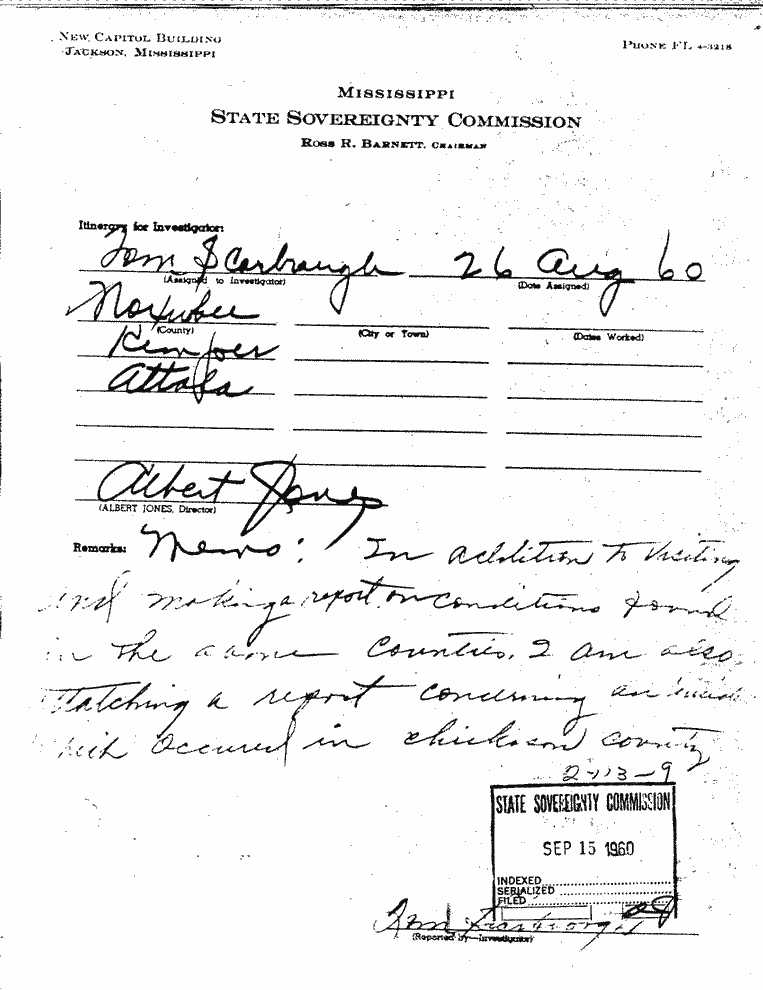 NEW CAPITOL BUILDING
JACKSON, MISSISSIPPI
PHONE FL 4-3218
MISSISSIPPI
STATE SOVEREIGNTY COMMISSION
ROSS R. BARNETT, CHAIRMAN
Itinerary for Investigator:
Tom Scarbrough 26 Aug 60
(Assigned to Investigator) (Date Assigned)
Noxubee
(County) (City or Town) (Dates Worked)
Kemper
Attala
Albert Jones
(ALBERT JONES, Director)
Remarks: Memo: In addition to visiting
and making a report on conditions found
in the above counties, I am also
attaching a report concerning an
which occured in chickasaw county
2-113-9
STATE SOVEREIGNTY COMMISSION
SEP 15 1960
INDEXED
SERIALIZED
FILED
Tom Scarbrough
(Reported by—Investigator)